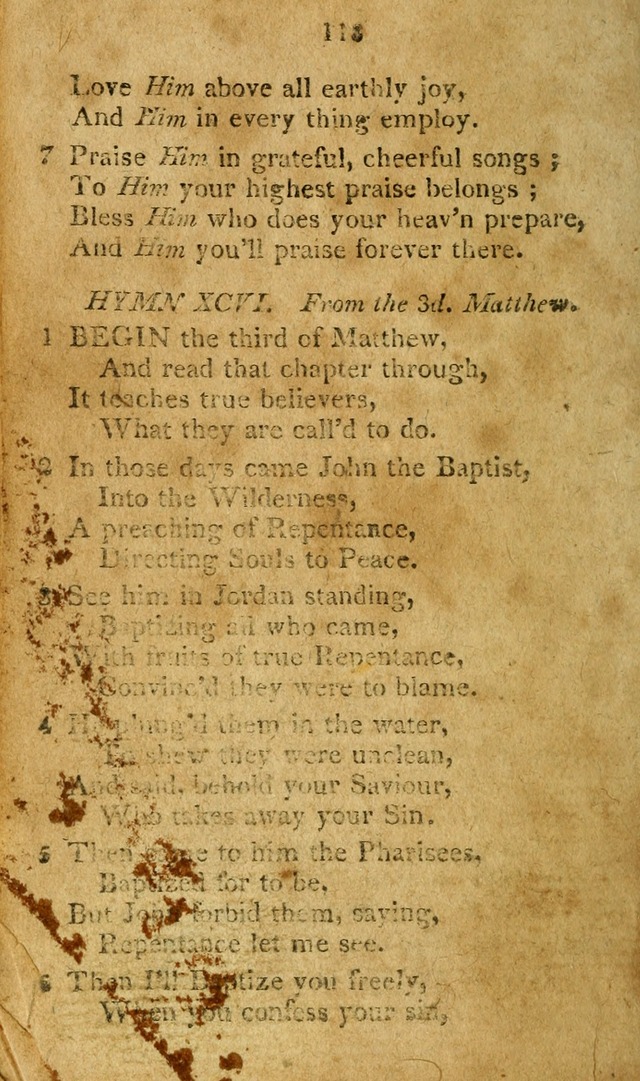 113
Love Him above all earthly joy,
And Him in every thing employ.
7 Praise Him in grateful, cheerful songs ;
To Him your highest praise belongs ;
Bless Him who does your heav'n prepare,
And Him you'll praise forever there.
HYMN XCVI. From the 3d. Matthew.
1 BEGIN the third of Matthew,
And read that chapter through,
It teaches true believers,
What they are call'd to do.
2 In those days came John the Baptist,
Into the Wilderness,
A preaching of Repentance,
Directing Souls to Peace.
3 See him in Jordan standing,
Baptizing all who came,
With fruits of true Repentance,
Convinc'd they were to blame.
4 He plung'd them in the water,
To shew they were unclean,
And said, behold your Saviour,
Who takes away your Sin.
5 Then came to him the Pharisees,
Baptized for to be,
But John forbid them, saying,
Repentance let me see.
6 Then I'll Baptize you freely,
When you confess your sin,